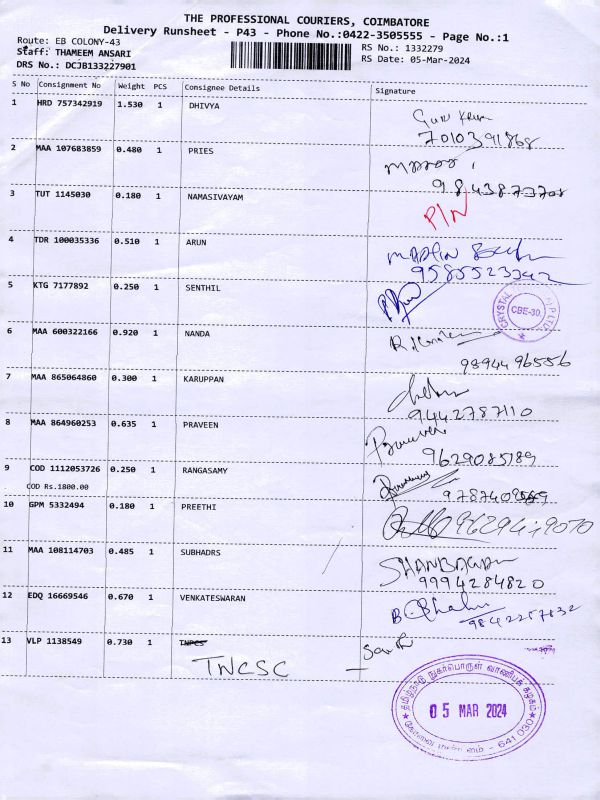 THE PROFESSIONAL COURIERS, COIMBATORE
Delivery Runsheet - P43 - Phone No.:0422-3505555 - Page No.:1
Route: EB COLONY-43
RS No.: 1332279
Staff: THAMEEM ANSARI
RS Date: 05-Mar-2024
DRS No.: DCJB133227901
S No Consignment No Weight PCS Consignee Details Signature
1 HRD 757342919 1.530 1 DHIVYA
7010391868
2 MAA 107683859 0.480 1 PRIES
3 TUT 1145030 0.180 1 NAMASIVAYAM
P/N
4 TDR 100035336 0.510 1 ARUN
9585523342
5 KTG 7177892 0.250 1 SENTHIL
CRYSTAL CBE-30 P LTD
6 MAA 600322166 0.920 1 NANDA
9894496556
7 MAA 865064860 0.300 1 KARUPPAN
9442787110
8 MAA 864960253 0.635 1 PRAVEEN
9629085189
9 COD 1112053726 0.250 1 RANGASAMY
COD Rs.1800.00
10 GPM 5332494 0.180 1 PREETHI
11 MAA 108114703 0.485 1 SUBHADRS
9994284820
12 EDQ 16669546 0.670 1 VENKATESWARAN
13 VLP 1138549 0.730 1 TNPCS
TNCSC
தமிழ்நாடு நுகர்பொருள் வாணிபக் கழகம்
05 MAR 2024
641 030